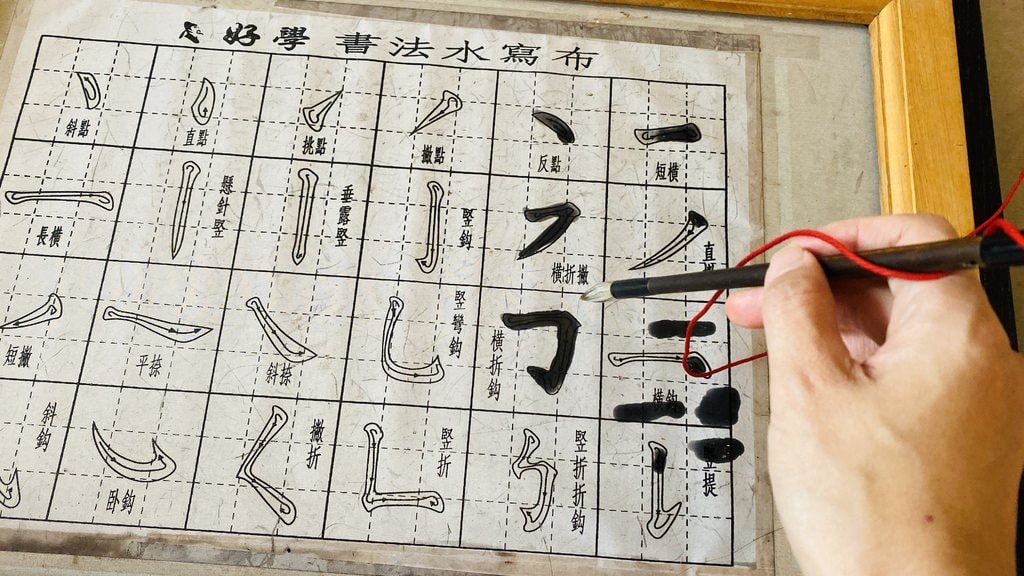 好學 書法水寫布
斜點
直點
挑點
撇點
反點
短橫
長橫
懸針豎
垂露豎
豎鈎
橫折撇
直
短撇
平捺
斜捺
豎彎鈎
橫折鈎
橫鈎
斜鈎
卧鈎
撇折
豎折
豎折折鈎
提